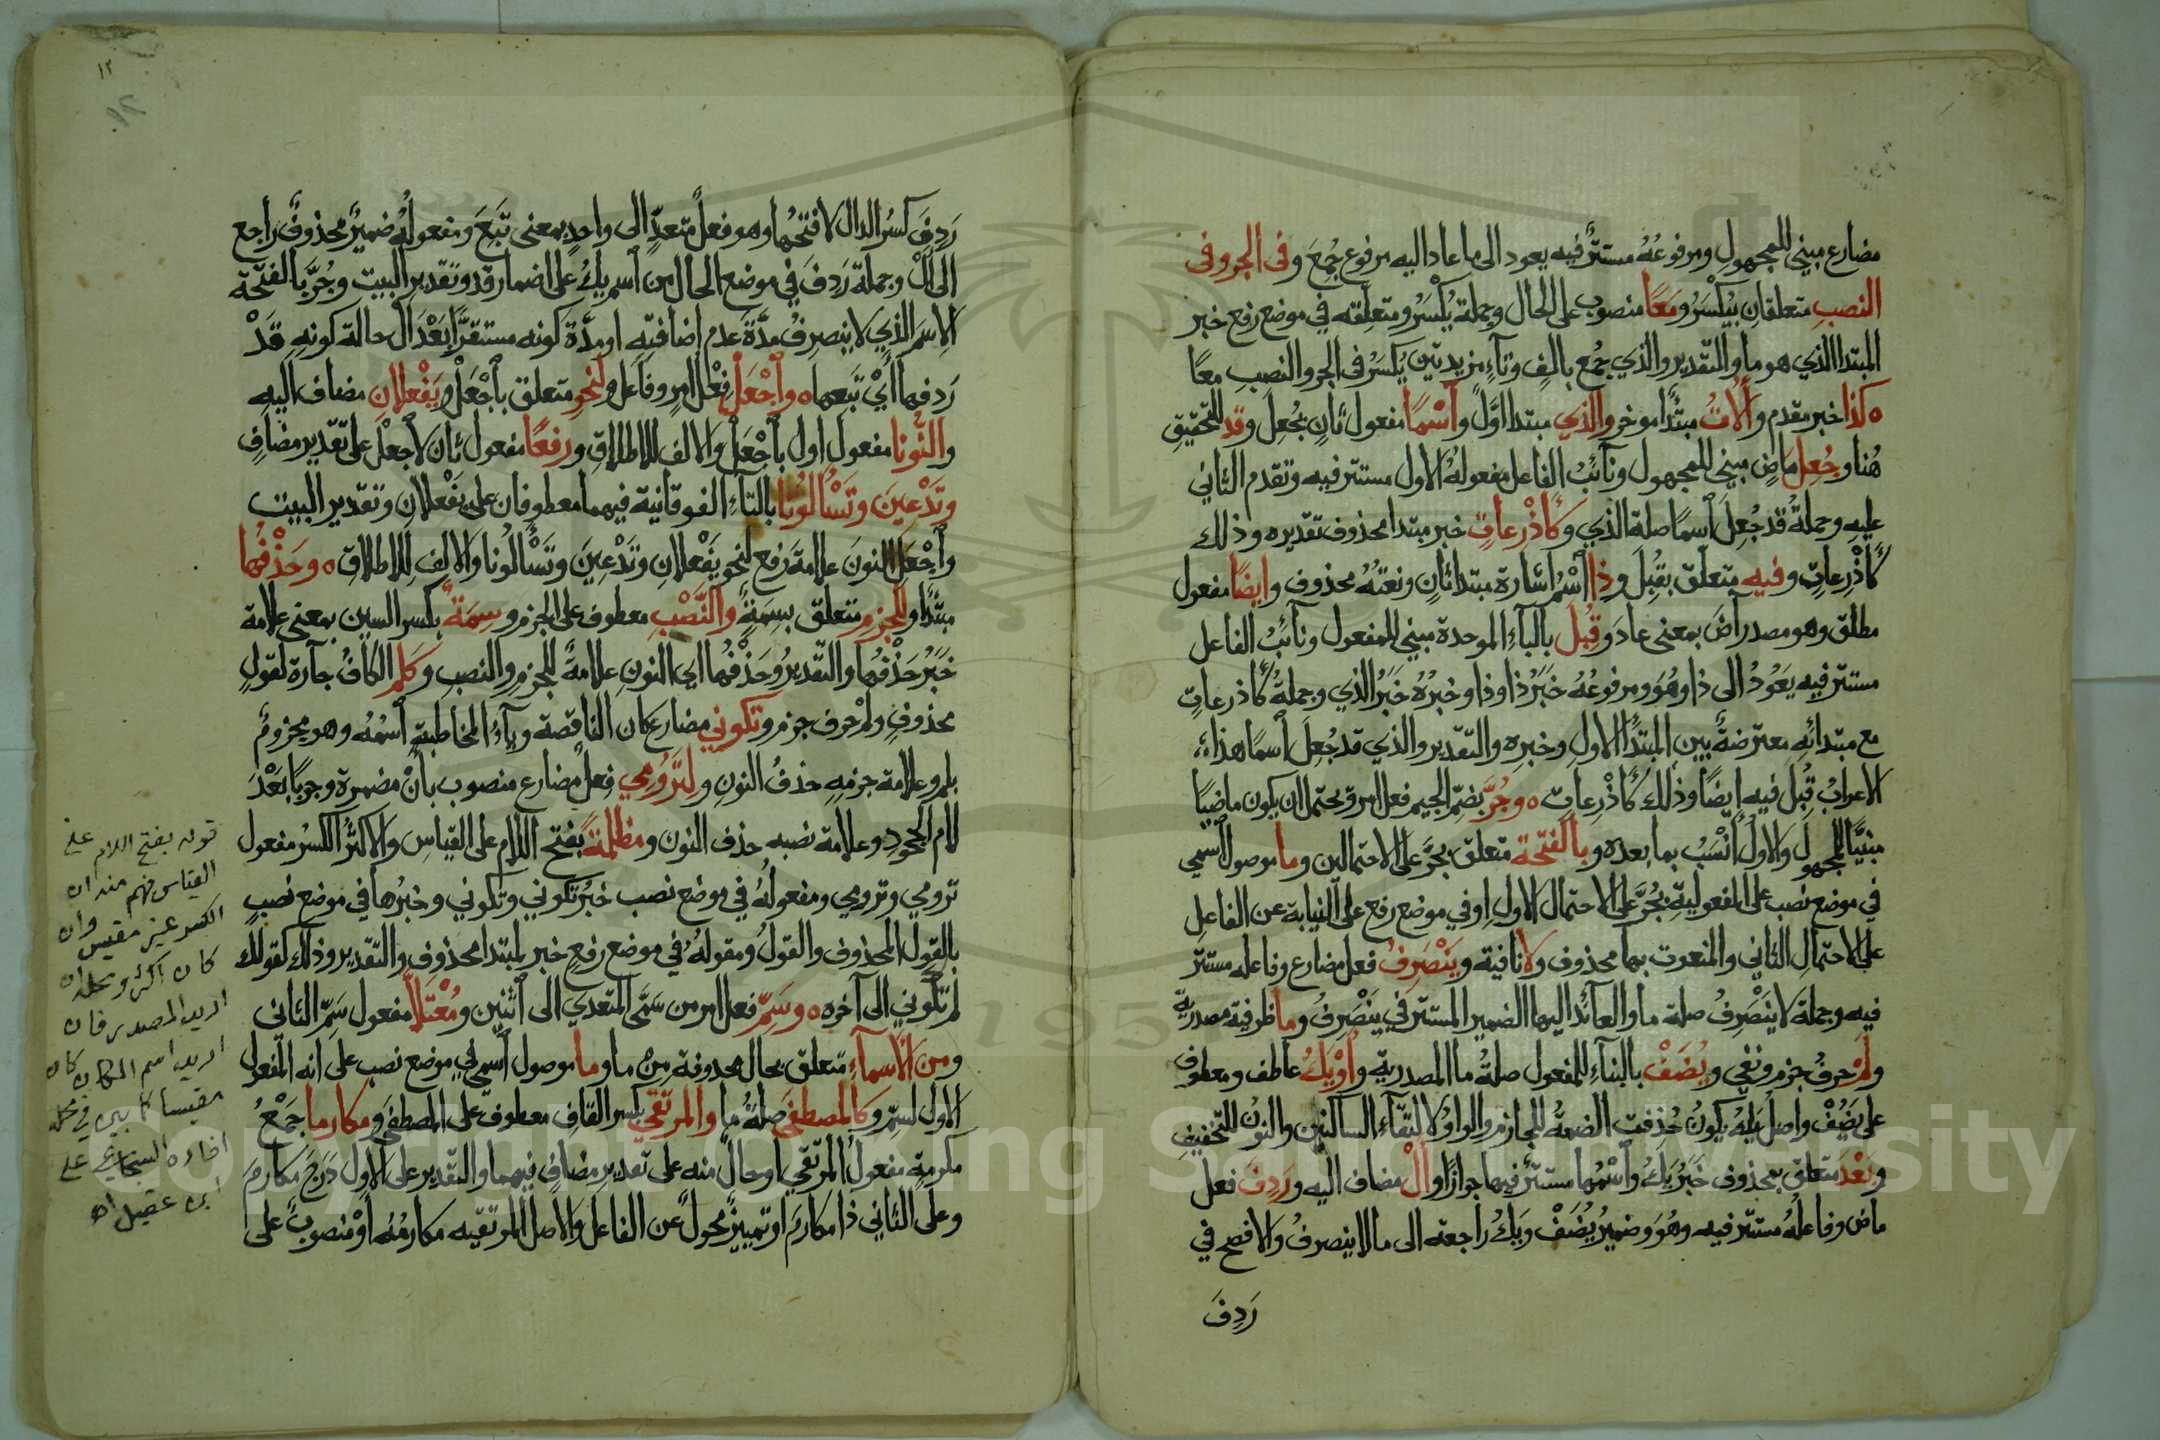 مضارع مبني للمجهول ومرفوعُهُ مستترٌ فيه يعود الى ما عاد اليه مرفوع جُمِعَ وفى الجر وفى
النصبِ متعلقانِ بيُكْسَرُ ومَعًا منصوب على الحال وجملة يُكْسَرُ ومتعلقه في موضع رفع خبر
المبتدا الذي هو ما والتقدير والذي جُمِع بالفٍ وتاءٍ مزيدتين يُكسَرُ فى الجر والنصبِ معًا
ه كذا خبر مقدم وألاتُ مبتدأ موخر والذي مبتدا اوَّل وأسْمًا مفعول ثانٍ بجُعِل وقد للتحقيق
هُنا وجُعِل ماضٍ مبني للمجهول ونآئبُ الفاعل مفعولهُ الاول مستتر فيه وتقدم الثاني
عليه وجملةُ قد جُعِلَ ٱسمًا صلة الذي وكَأَذْرِعاتٍ خبر مبتدا محذوف تقديره وذلك
كَأَذْرِعاتٍ وفيه متعلق بقُبِلَ وذا ٱسْمُ اشارة مبتدا ثانٍ ونعتهُ محذوف وايضًا مفعول
مطلق وهو مصدر آضَ بمعنى عادَ وقُبِلْ بالبآءِ الموحدة مبني للمفعول ونآئبُ الفاعل
مستتر فيه يَعُوْدُ الى ذا وهُوَ ومرفوعُهُ خبَرُ ذا وذا وخبرُهُ خبَرُ الذي وجملةُ كَأَذرعاتٍ
مع مبتدائهِ معترضةٌ بين المبتدأ الاولِ وخبرِهِ والتقدير والذي قد جُعِلَ ٱسمًا هذا
الاعرابُ قُبِل فيه ايضًا وذلك كَأَذْرِعاتٍ ه وجُرَّ بضمِّ الجيم فعل امر ويحتمل ان يكون ماضيًا
مبنيًّا للمجهول والاولُ أنْسَبُ بما بعده وبالفتحة متعلق بجُرَّ على الاحتمالين وما موصول ٱسمي
في موضع نصب على المفعولية بجُرَّ على الاحتمال الاولِ او في موضع رفع على النيابة عن الفاعلِ
على الاحتمالِ الثاني والمنعوت بها محذوف ولا نافية وينْصَرِفْ فعل مضارع وفاعله مستتر
فيه وجملة لا يَنْصَرِفُ صلة ما والعآئد اليها الضمير المستتر في ينصرف وما ظرفية مصدرية
ولَمْ حرفُ جزم ونفي ويُضَفْ بالبنآءِ للمفعول صلةُ ما المصدرية وأوْ يكُ عاطف ومعطوف
على يُضَفْ واصلُ يكُ يكونُ حُذفت الضمةُ للجازم والواوُ لالتقآءِ الساكنين والنونُ للتخفيفِ
وبَعْدَ متعلق بمحذوف خبَرُ يكُ وٱسْمُها مستتر فيها جوازًا وألْ مضاف اليه ورَدِفَ فعل
ماض وفاعلهُ مستتر فيه وهُوَ وضميرُ يُضَفْ ويكُ راجعة الى ما لا ينصرفُ والافصح في
رَدِفَ
١٢
رَدِفَ كسْرُ الدال لا فتحُها وهو فعلٌ متعدٍّ الى واحدٍ بمعنى تَبِعَ ومفعولُهُ ضميرٌ محذوفٌ راجع
الى ألْ وجملة رَدِفَ في موضع الحال من ٱسم يكُ على اضمار قد وتقدير البيت وجُرَّ بالفتحة
الاسمَ الذي لا ينصرفُ مدَّةَ عدم اضافتِهِ او مدَّة كونه مستقرًّا بَعْدَ ألْ حالة كونهِ قَدْ
رَدِفها أيْ تَبعها ه وٱجْعَلْ فعْل امر وفاعل ولنحو متعلق بٱجْعَلْ ويَفْعلانِ مضاف اليهِ
والنُّونا مفعول اول بٱجْعَلْ والالف للاطلاق ورفعًا مفعول ثان لاجعلْ على تقدير مضافٍ
وتَدْعِينَ وتَسْأَلُونا بالتآءِ الفوقانية فيهما معطوفان على يَفْعلانِ وتقدير البيت
وٱجْعَلِ النونَ علامةَ رفع لنحو يَفْعلانِ وتَدْعِينَ وتَسْأَلُونا والالِف للاطلاق ه وحَذْفُها
مبتدأ وللجزم متعلق بسِمَةٌ والنَّصْبِ معطوف على الجزم وسِمَةٌ بكسر السين بمعنى علامة
خبَرُ حَذْفُها والتقديرُ وحَذْفُها اي النونِ علامةٌ للجزم والنصبِ وكلمْ الكافُ جآرة لقولٍ
محذوفٍ ولمْ حرف جزم وتكوني مضارع كان الناقصة ويآءُ المخاطبةِ ٱسْمُهُ وهو مجزومٌ
بلم وعلامة جزمهِ حذفُ النونِ ولِتَرُومِي فعلٌ مضارع منصوب بأنْ مضمرة وجوبًا بَعْدَ
لام الجحودِ وعلامة نصبه حذف النون ومظلمهْ بفتح اللام على القياسِ والاكثرُ الكسرُ مفعول
ترومي وترومي ومفعولُهُ في موضع نصب خبرُ تكوني وتكوني وخبرُها في موضع نصب
بالقول المحذوف والقولُ ومقولهُ في موضع رفع خبر لمبتدا محذوف والتقدير وذلك كقولك
لم تكوني الى آخره ه وسَمِّ فعل امر من سَمَّى المتعدي الى ٱثنين ومُعْتَلًّا مفعول سَمِّ الثاني
ومن الأسمآءِ متعلق بحال محذوفة من ما وما موصول ٱسمي في موضع نصب على انه المفعول
الاول لسمِّ وكالمصطفى صلةُ ما والمرتقي بكسر القافِ معطوف على المصطفى ومكارما جمْعُ
مكرمة مفعول المرتقي او حالٌ منه على تقدير مضافٍ فيهما والتقدير على الاول دَرَجَ مكارمَ
وعلى الثاني ذا مكارمَ او تمييزٌ محولٌ عن الفاعل والاصل المرتقيه مكارمُهُ أوْ منصوبٌ على
قوله بفتح اللام على
القياس فهم منه ان
الكسر غير مقيس وان
كان اكثر ومحله ان
اريد المصدر فان
اريد اسم المكان كان
مقيسا كما بين في محله
افاده السجاعي على
ابن عقيل اه
Copyright © King Saud University
1957